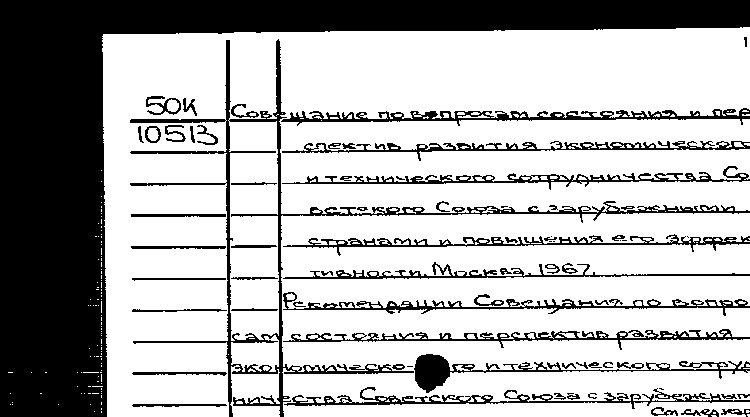 1
50К
10513
Совещание по вопросам состояния и пер
спектив развития экономического
и технического сотрудничества Со
ветского Союза с зарубежными
странами и повышения его эффек
тивности. Москва. 1967.
Рекомендации Совещания по вопро
сам состояния и перспектив развития
экономического и технического сотруд
ничества Советского Союза с зарубежными
См.след.кар